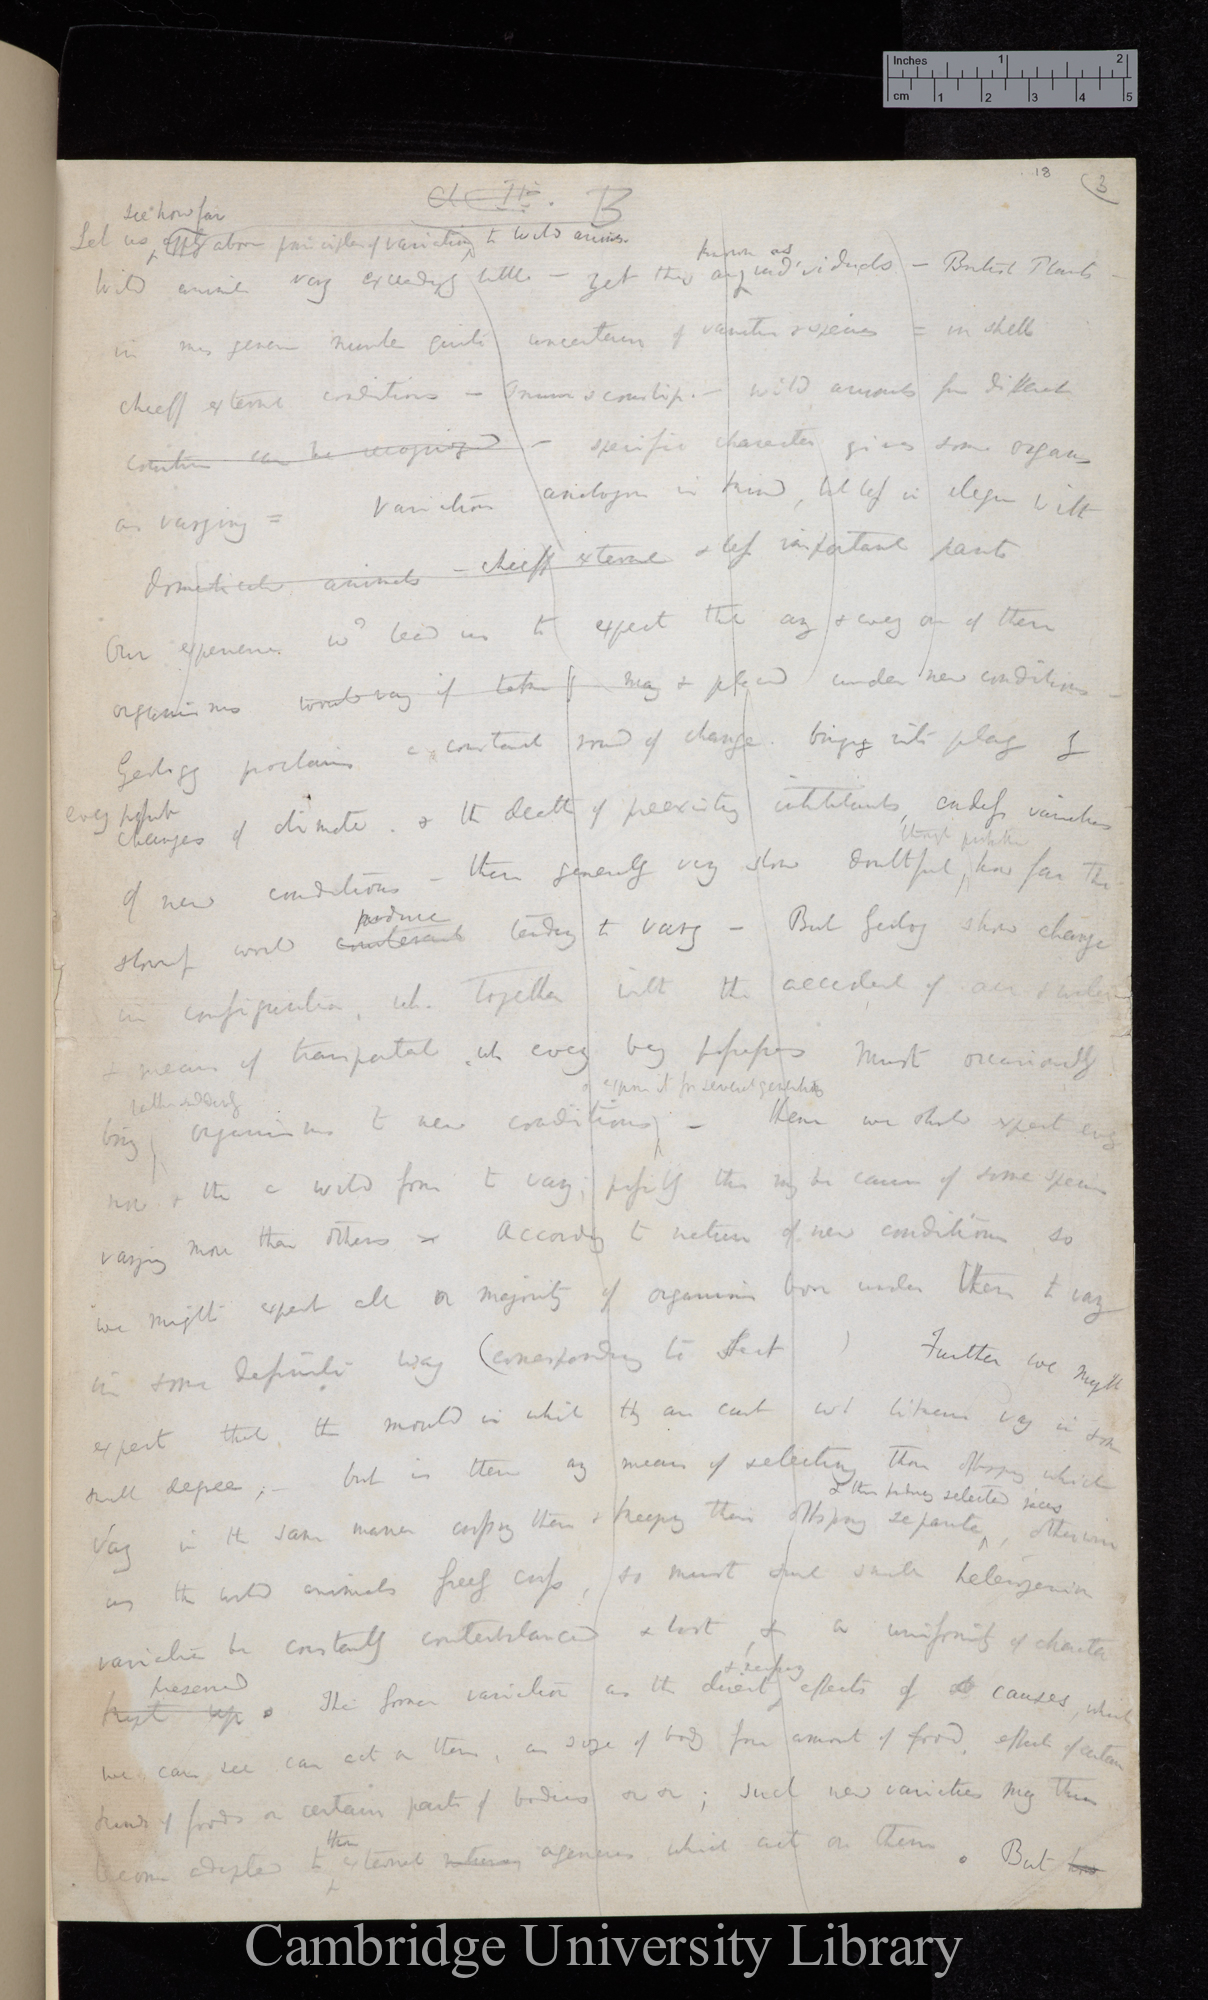 Inches 1 2
cm 1 2 3 4 5
18 3
Ch II. B
see how far
Let us above principles of variation to wild animals
known as
Wild animals vary exceedingly little — yet they individuals — British Plants —
in many genera number quite uncertain of varieties & species = in shells
chiefly external conditions — Primrose & cowslip. — wild animals from different
countries can be recognised — specific character gives some organs
as varying = Variations analogous in kind, but less in degree with
domesticated animals — chiefly external & less important parts
Our experience wd lead us to expect that any & every one of these
organisms would vary if taken away & placed under new conditions —
Geology proclaims a constant round of change. bringing into play by
every possible
changes of climate. & the death of preexisting inhabitants, endless variations
though
of new conditions — these generally very slow doubtful, how far the
produce
slowness would tendency to vary — But Geolog show change
in configuration, wh. together with the accident of air & water
& means of transportal wh every being possesses must occasionally
rather suddenly & expose it for several generations
bring organisms to new conditions — Hence we shd expect every
now & then a wild form to vary; possibly this may be cause of some species
varying more than others According to nature of new conditions so
we might expect all or majority of organisms born under them to vary
in some definite way (corresponding to ) Further we might
expect that the mould in which they are cast wd likewise vary in some
small degree; — but is there any means of selecting those offspring which
& thus selected races
vary in the same manner crossing them & keeping their offspring separate, otherwise
as the wild animals freely cross, so must such small heterogeneous
varieties be constantly counterbalanced & lost, & a uniformity of character
preserved
kept up. The former variation as the direct effects of causes, which
we can see can act on them, as size of body from amount of food, effect of certain
kinds of foods on certain parts of bodies &c &c; such new varieties may then
those
become adapted to external agencies which act on them. But
Cambridge University Library